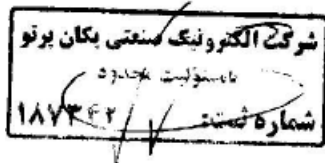 شرکت الکترونیک صنعتی یکان پرتو
با مسئولیت محدود
شماره ثبت: ۱۸۷۳۴۲